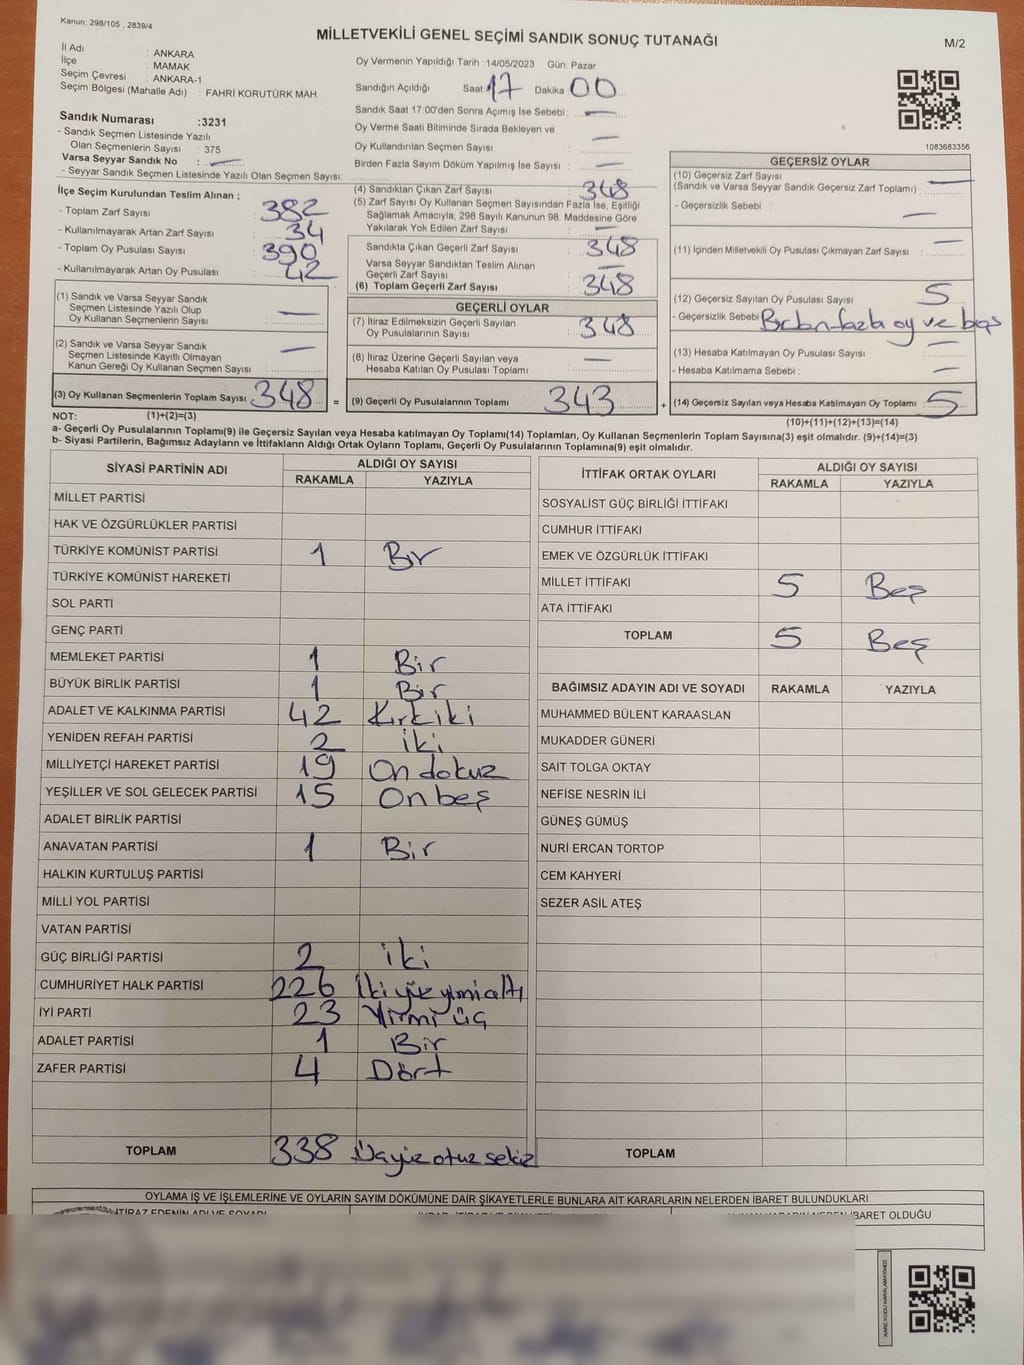 Kanun; 298/105 , 2839/4
MİLLETVEKİLİ GENEL SEÇİMİ SANDIK SONUÇ TUTANAĞI
M/2
İl Adı : ANKARA
İlçe : MAMAK
Seçim Çevresi : ANKARA-1
Seçim Bölgesi (Mahalle Adı) : FAHRİ KORUTÜRK MAH.
Oy Vermenin Yapıldığı Tarih : 14/05/2023 Gün: Pazar
Sandığın Açıldığı Saat: 17 Dakika 00
Sandık Saat 17:00'den Sonra Açımış İse Sebebi : —
Oy Verme Saali Bitiminde Sırada Bekleyen ve
Oy Kullandırılan Seçmen Sayısı : —
Birden Fazla Sayım Döküm Yapılmış İse Sayısı : —
Sandık Numarası :3231
- Sandık Seçmen Listesinde Yazılı
Olan Seçmenlerin Sayısı : 375
Varsa Seyyar Sandık No : —
- Seyyar Sandık Seçmen Listesinde Yazılı Olan Seçmen Sayısı:
1083683356
İlçe Seçim Kurulundan Teslim Alınan ;
- Toplam Zarf Sayısı : 382
- Kullanılmayarak Artan Zarf Sayısı : 34
- Toplam Oy Pusulası Sayısı : 390
- Kullanılmayarak Artan Oy Pusulası : 42
(1) Sandık ve Varsa Seyyar Sandık
Seçmen Listesinde Yazılı Olup
Oy Kullanan Seçmenlerin Sayısı : —
(2) Sandık ve Varsa Seyyar Sandık
Seçmen Listesinde Kayıtlı Olmayan
Kanun Gereği Oy Kullanan Seçmen Sayısı : —
(3) Oy Kullanan Seçmenlerin Toplam Sayısı : 348 =
(4) Sandıktan Çıkan Zarf Sayısı : 348
(5) Zarf Sayısı Oy Kullanan Seçmen Sayısından Fazla İse, Eşitliği
Sağlamak Amacıyla; 298 Sayılı Kanunun 98. Maddesine Göre
Yakılarak Yok Edilen Zarf Sayısı : —
Sandıkta Çıkan Geçerli Zarf Sayısı : 348
Varsa Seyyar Sandıktan Teslim Alınan
Geçerli Zarf Sayısı : —
(6) Toplam Geçerli Zarf Sayısı : 348
GEÇERLİ OYLAR
(7) İtiraz Edilmeksizin Geçerli Sayılan
Oy Pusulalarının Sayısı : 348
(8) İtiraz Üzerine Geçerli Sayılan veya
Hesaba Katılan Oy Pusulası Toplamı : —
(9) Geçerli Oy Pusulalarının Toplamı : 343 +
GEÇERSİZ OYLAR
(10) Geçersiz Zarf Sayısı
(Sandık ve Varsa Seyyar Sandık Geçersiz Zarf Toplamı) : —
- Geçersizlik Sebebi : —
(11) İçinden Milletvekili Oy Pusulası Çıkmayan Zarf Sayısı : —
(12) Geçersiz Sayılan Oy Pusulası Sayısı : 5
- Geçersizlik Sebebi : Birden fazla oy ve boş
(13) Hesaba Katılmayan Oy Pusulası Sayısı : —
- Hesaba Katılmama Sebebi : —
(14) Geçersiz Sayılan veya Hesaba Katılmayan Oy Toplamı : 5
NOT: (1)+(2)=(3) (10)+(11)+(12)+(13)=(14)
a- Geçerli Oy Pusulalarının Toplamı(9) ile Geçersiz Sayılan veya Hesaba katılmayan Oy Toplamı(14) Toplamları, Oy Kullanan Seçmenlerin Toplam Sayısına(3) eşit olmalıdır. (9)+(14)=(3)
b- Siyasi Partilerin, Bağımsız Adayların ve İttifakların Aldığı Ortak Oyların Toplamı, Geçerli Oy Pusulalarının Toplamına(9) eşit olmalıdır.
SİYASİ PARTİNİN ADI ALDIĞI OY SAYISI
RAKAMLA YAZIYLA
MİLLET PARTİSİ
HAK VE ÖZGÜRLÜKLER PARTİSİ
TÜRKİYE KOMÜNİST PARTİSİ 1 Bir
TÜRKİYE KOMÜNİST HAREKETİ
SOL PARTİ
GENÇ PARTİ
MEMLEKET PARTİSİ 1 Bir
BÜYÜK BİRLİK PARTİSİ 1 Bir
ADALET VE KALKINMA PARTİSİ 42 Kırkiki
YENİDEN REFAH PARTİSİ 2 iki
MİLLİYETÇİ HAREKET PARTİSİ 19 On dokuz
YEŞİLLER VE SOL GELECEK PARTİSİ 15 On beş
ADALET BİRLİK PARTİSİ
ANAVATAN PARTİSİ 1 Bir
HALKIN KURTULUŞ PARTİSİ
MİLLİ YOL PARTİSİ
VATAN PARTİSİ
GÜÇ BİRLİĞİ PARTİSİ 2 iki
CUMHURİYET HALK PARTİSİ 226 İkiyüzyirmialtı
İYİ PARTİ 23 Yirmi üç
ADALET PARTİSİ 1 Bir
ZAFER PARTİSİ 4 Dört
TOPLAM 338 Üçyüz otuz sekiz
İTTİFAK ORTAK OYLARI ALDIĞI OY SAYISI
RAKAMLA YAZIYLA
SOSYALİST GÜÇ BİRLİĞİ İTTİFAKI
CUMHUR İTTİFAKI
EMEK VE ÖZGÜRLÜK İTTİFAKI
MİLLET İTTİFAKI 5 Beş
ATA İTTİFAKI
TOPLAM 5 Beş
BAĞIMSIZ ADAYIN ADI VE SOYADI RAKAMLA YAZIYLA
MUHAMMED BÜLENT KARAASLAN
MUKADDER GÜNERİ
SAİT TOLGA OKTAY
NEFİSE NESRİN İLİ
GÜNEŞ GÜMÜŞ
NURİ ERCAN TORTOP
CEM KAHYERİ
SEZER ASİL ATEŞ
TOPLAM
OYLAMA İŞ VE İŞLEMLERİNE VE OYLARIN SAYIM DÖKÜMÜNE DAİR ŞİKAYETLERLE BUNLARA AİT KARARLARIN NELERDEN İBARET BULUNDUKLARI
İTİRAZ EDENİN ADI VE SOYADI
İBARET OLDUĞU
KARE KODU KARALAMAYINIZ!